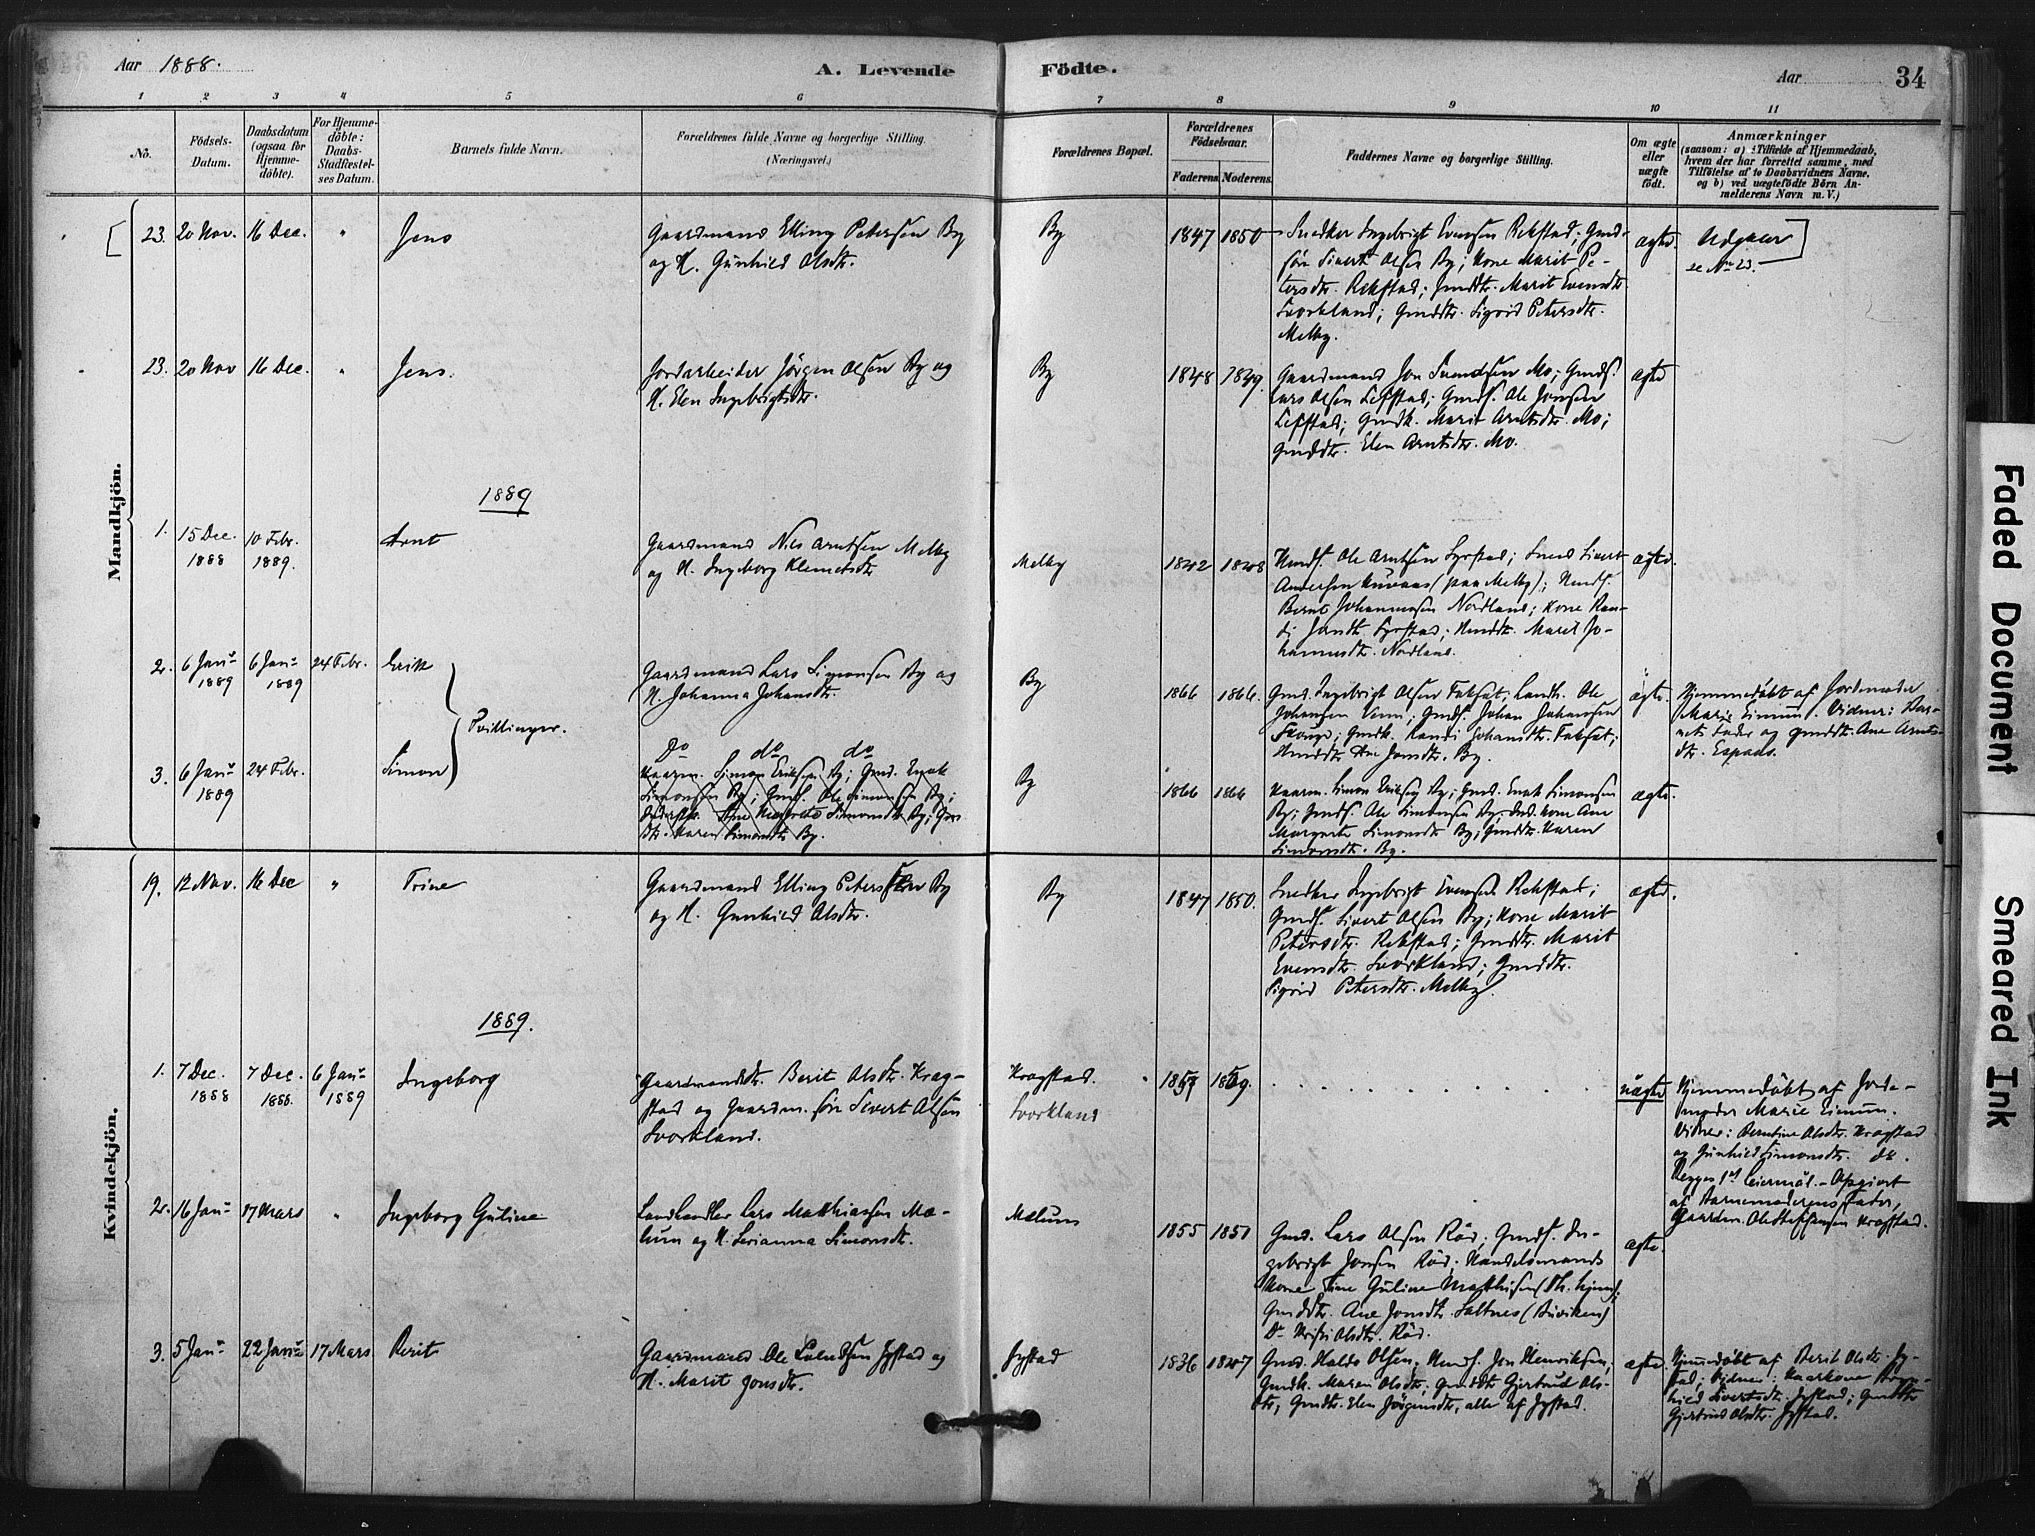 Aar 1888.
A. Levende Födte.
Aar
34
1 2 3 4 5 6 7 8 9 10 11
No.
Födsels-
Datum.
Daabsdatum
(ogsaa for
Hjemme-
döbte).
For Hjemme-
döbte:
Daabs-
Stadfæstel-
ses Datum.
Barnets fulde Navn.
Forældrenes fulde Navne og borgerlige Stilling.
(Næringsvei.)
Forældrenes Bopæl.
Forældrenes
Födselsaar.
Faderens. Moderens.
Faddernes Navne og borgerlige Stilling.
Om ægte
eller
uægte
födt.
Anmærkninger
(saasom: a) i Tilfælde af Hjemmedaab,
hvem der har forrettet samme, med
Tilföielse af to Daabsvidners Navne,
og b) ved uægtefödte Börn An-
melderens Navn m. V.)
Mandkjön.
23. 20 Nov. 16 Dec. " Jens
Gaardmand Elling Petersen By
og H. Gunhild Olsdtr.
By
1847 1850
Snedker Ingebrigt Evensen Rekstad; Gmd-
sön Sivert Olsen By; Kone Marit Pe-
tersdtr. Rekstad; Gmddtr. Marit Evensdtr.
Svorkland; Gmddtr. Sigrid Petersdtr.
Melby.
ægte
Udgaaer
se No 23.
23. 20 Nov 16 Dec. " Jens.
Jordarbeider Jörgen Olsen By og
H. Elen Ingebrigtsdtr.
By
1848 1849.
Gaardmand Jon Svendsen Mo; Gmds.
Lars Olsen Lefstad; Gmds. Ole Jonsen
Lefstad; Gmdk. Marit Arntsdtr. Mo;
Gmddtr. Elen Arntsdtr. Mo.
ægte
1889
1. 15 Dec.
1888
10 Febr.
1889.
Arnt
Gaardmand Nils Arntsen Melby
og H. Ingeborg Klemetsdtr
Melby
1842 1848
Ole Arntsen Syrstad; Sivert
Andersen (paa Melby);
Bernt Johannesen Nordland; Kone Ran-
di Syrstad; Marit Jo-
hannesdtr. Nordland.
ægte.
2. 6 Janu
1889
6 Janu
1889
24 Febr. Erik
Tvillinger.
Gaardmand Lars Simonsen By og
H. Johanna Johansdtr.
By
1866 1866.
Gmd. Ingebrigt Olsen; Landh. Ole
Johansen; Gmds. Johan Johansen
; Gmdk. Randi Johansdtr.;
Ane Jonsdtr. By.
ægte.
Hjemmedöbt af Jordemoder
Marie Eimun. Vidner: Bar-
nets Fader og Gmddtr. Ane Arnts-
dtr. Espaas.
3. 6 Janu
1889
24 Febr. Simon
Do do do
Kaarm. Simon Eriksen By; Gmd. Enok
Simonsen By; Gmds. Ole Simonsen By;
Ane Margrete Simonsdtr. By; Gmd-
dtr. Maren Simonsdtr. By.
By
1866 1866
Kaarm. Simon Eriksen By; Gmd. Enok Simonsen
By; Gmds. Ole Simonsen By; Kone Ane
Margrete Simonsdtr. By; Gmddtr. Maren
Simonsdtr. By.
ægte.
Kvindekjön.
19. 12 Nov. 16 Dec " Trine
Gaardmand Elling Petersen By
og H. Gunhild Olsdtr.
By
1847 1850.
Snedker Ingebrigt Evensen Rekstad;
Gmds. Sivert Olsen By; Kone Marit
Petersdtr. Rekstad; Gmddtr. Marit
Evensdtr. Svorkland; Gmddtr.
Sigrid Petersdtr. Melby.
ægte.
1889.
1. 7 Dec.
1888
7 Dec.
1888.
6 Janu
1889
Ingeborg
Gaardmandsdtr. Berit Olsdtr. Krag-
stad og Gaardm. sön Sivert Olsen
Svorkland.
Kragstad.
Svorkland
1857 1869.
uægte
Hjemmedöbt af Jorde-
moder Marie Eimun.
Vidner: Berntine Olsdtr. Kragstad
og Gunhild Simonsdtr. do.
Begges 1st Leiermål. Opgivet
af Barnemoderens Fader,
Gaardm. Ole Steffensen Kragstad.
2. 16 Janu 17 Mars " Ingeborg Guline
Landhandler Lars Matthiassen Mæ-
lum og H. Serianna Simonsdtr.
Mælum
1855 1851
Gmd. Lars Olsen Röd; Gmds. In-
gebrigt Jonsen Röd; Handelsmands
Kone Guline Matthisen (Th. hjem);
Gmddtr. Ane Jonsdtr. Saltnes (Buviken)
Do Olsdtr. Röd.
ægte.
3. 5 Janu 22 Janu 17 Mars Berit
Gaardmand Ole Jystad og
H. Marit Jonsdtr.
Jystad
1836 1847
Gmd. Haldo Olsen, Jon Henriksen,
Gmdk. Maren Olsdtr, Gmddtr Gjertrud Ols-
dtr, Gmdtr. Elen Jörgensdtr, alle af Jystad.
ægte
Hjemmedöbt af Berit Olsdtr. Jy-
stad; Vidner: Kaarkone
Sivertsdtr. Jystad; Gmddtr
Gjertrud Olsdtr. Jystad.
Faded Document
Smeared Ink